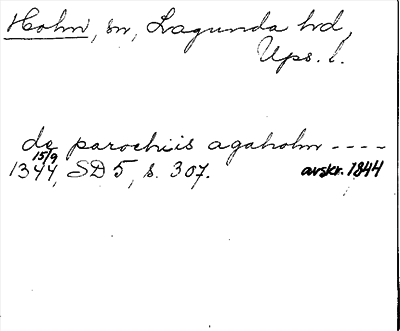 Holm, sn, Lagunda hd,
Ups. l.
de parochiis agaholm ----
15/9
1344, SD 5, s. 307.
avskr. 1844